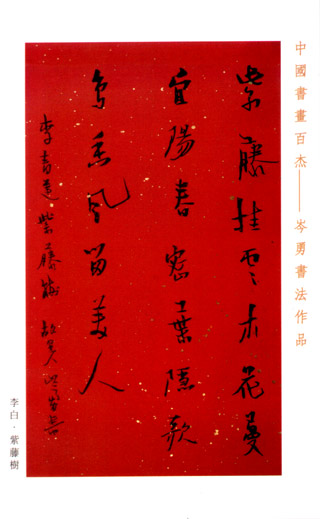 中國書畫百杰——岑勇書法作品
紫藤挂雲木花蔓
宜陽春密葉隱歌
鳥香風留美人
李青蓮紫藤樹
李白·紫藤樹